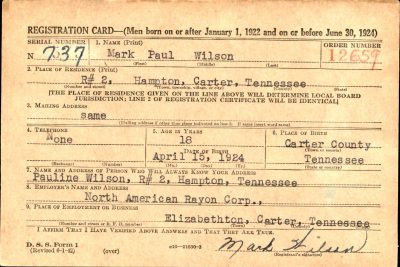 REGISTRATION CARD—(Men born on or after January 1, 1922 and on or before June 30, 1924)
SERIAL NUMBER 1. NAME (Print) ORDER NUMBER
N 737 Mark Paul Wilson 12659
(First) (Middle) (Last)
2. PLACE OF RESIDENCE (Print)
R# 2, Hampton, Carter, Tennessee
(Number and street) (Town, township, village, or city) (County) (State)
[THE PLACE OF RESIDENCE GIVEN ON THE LINE ABOVE WILL DETERMINE LOCAL BOARD
JURISDICTION; LINE 2 OF REGISTRATION CERTIFICATE WILL BE IDENTICAL]
3. MAILING ADDRESS
same
[Mailing address if other than place indicated on line 2. If same insert word same]
4. TELEPHONE 5. AGE IN YEARS 6. PLACE OF BIRTH
None 18 Carter County
DATE OF BIRTH (Town or county)
April 15, 1924 Tennessee
(Exchange) (Number) (Mo.) (Day) (Yr.) (State or country)
7. NAME AND ADDRESS OF PERSON WHO WILL ALWAYS KNOW YOUR ADDRESS
Pauline Wilson, R# 2, Hampton, Tennessee
8. EMPLOYER'S NAME AND ADDRESS
North American Rayon Corp.,
9. PLACE OF EMPLOYMENT OR BUSINESS
Elizabethton, Carter, Tennessee
(Number and street or R. F. D. number) (Town) (County) (State)
I AFFIRM THAT I HAVE VERIFIED ABOVE ANSWERS AND THAT THEY ARE TRUE.
D. S. S. Form 1
(Revised 6-1-42) (over) Mark Wilson
(Registrant's signature)